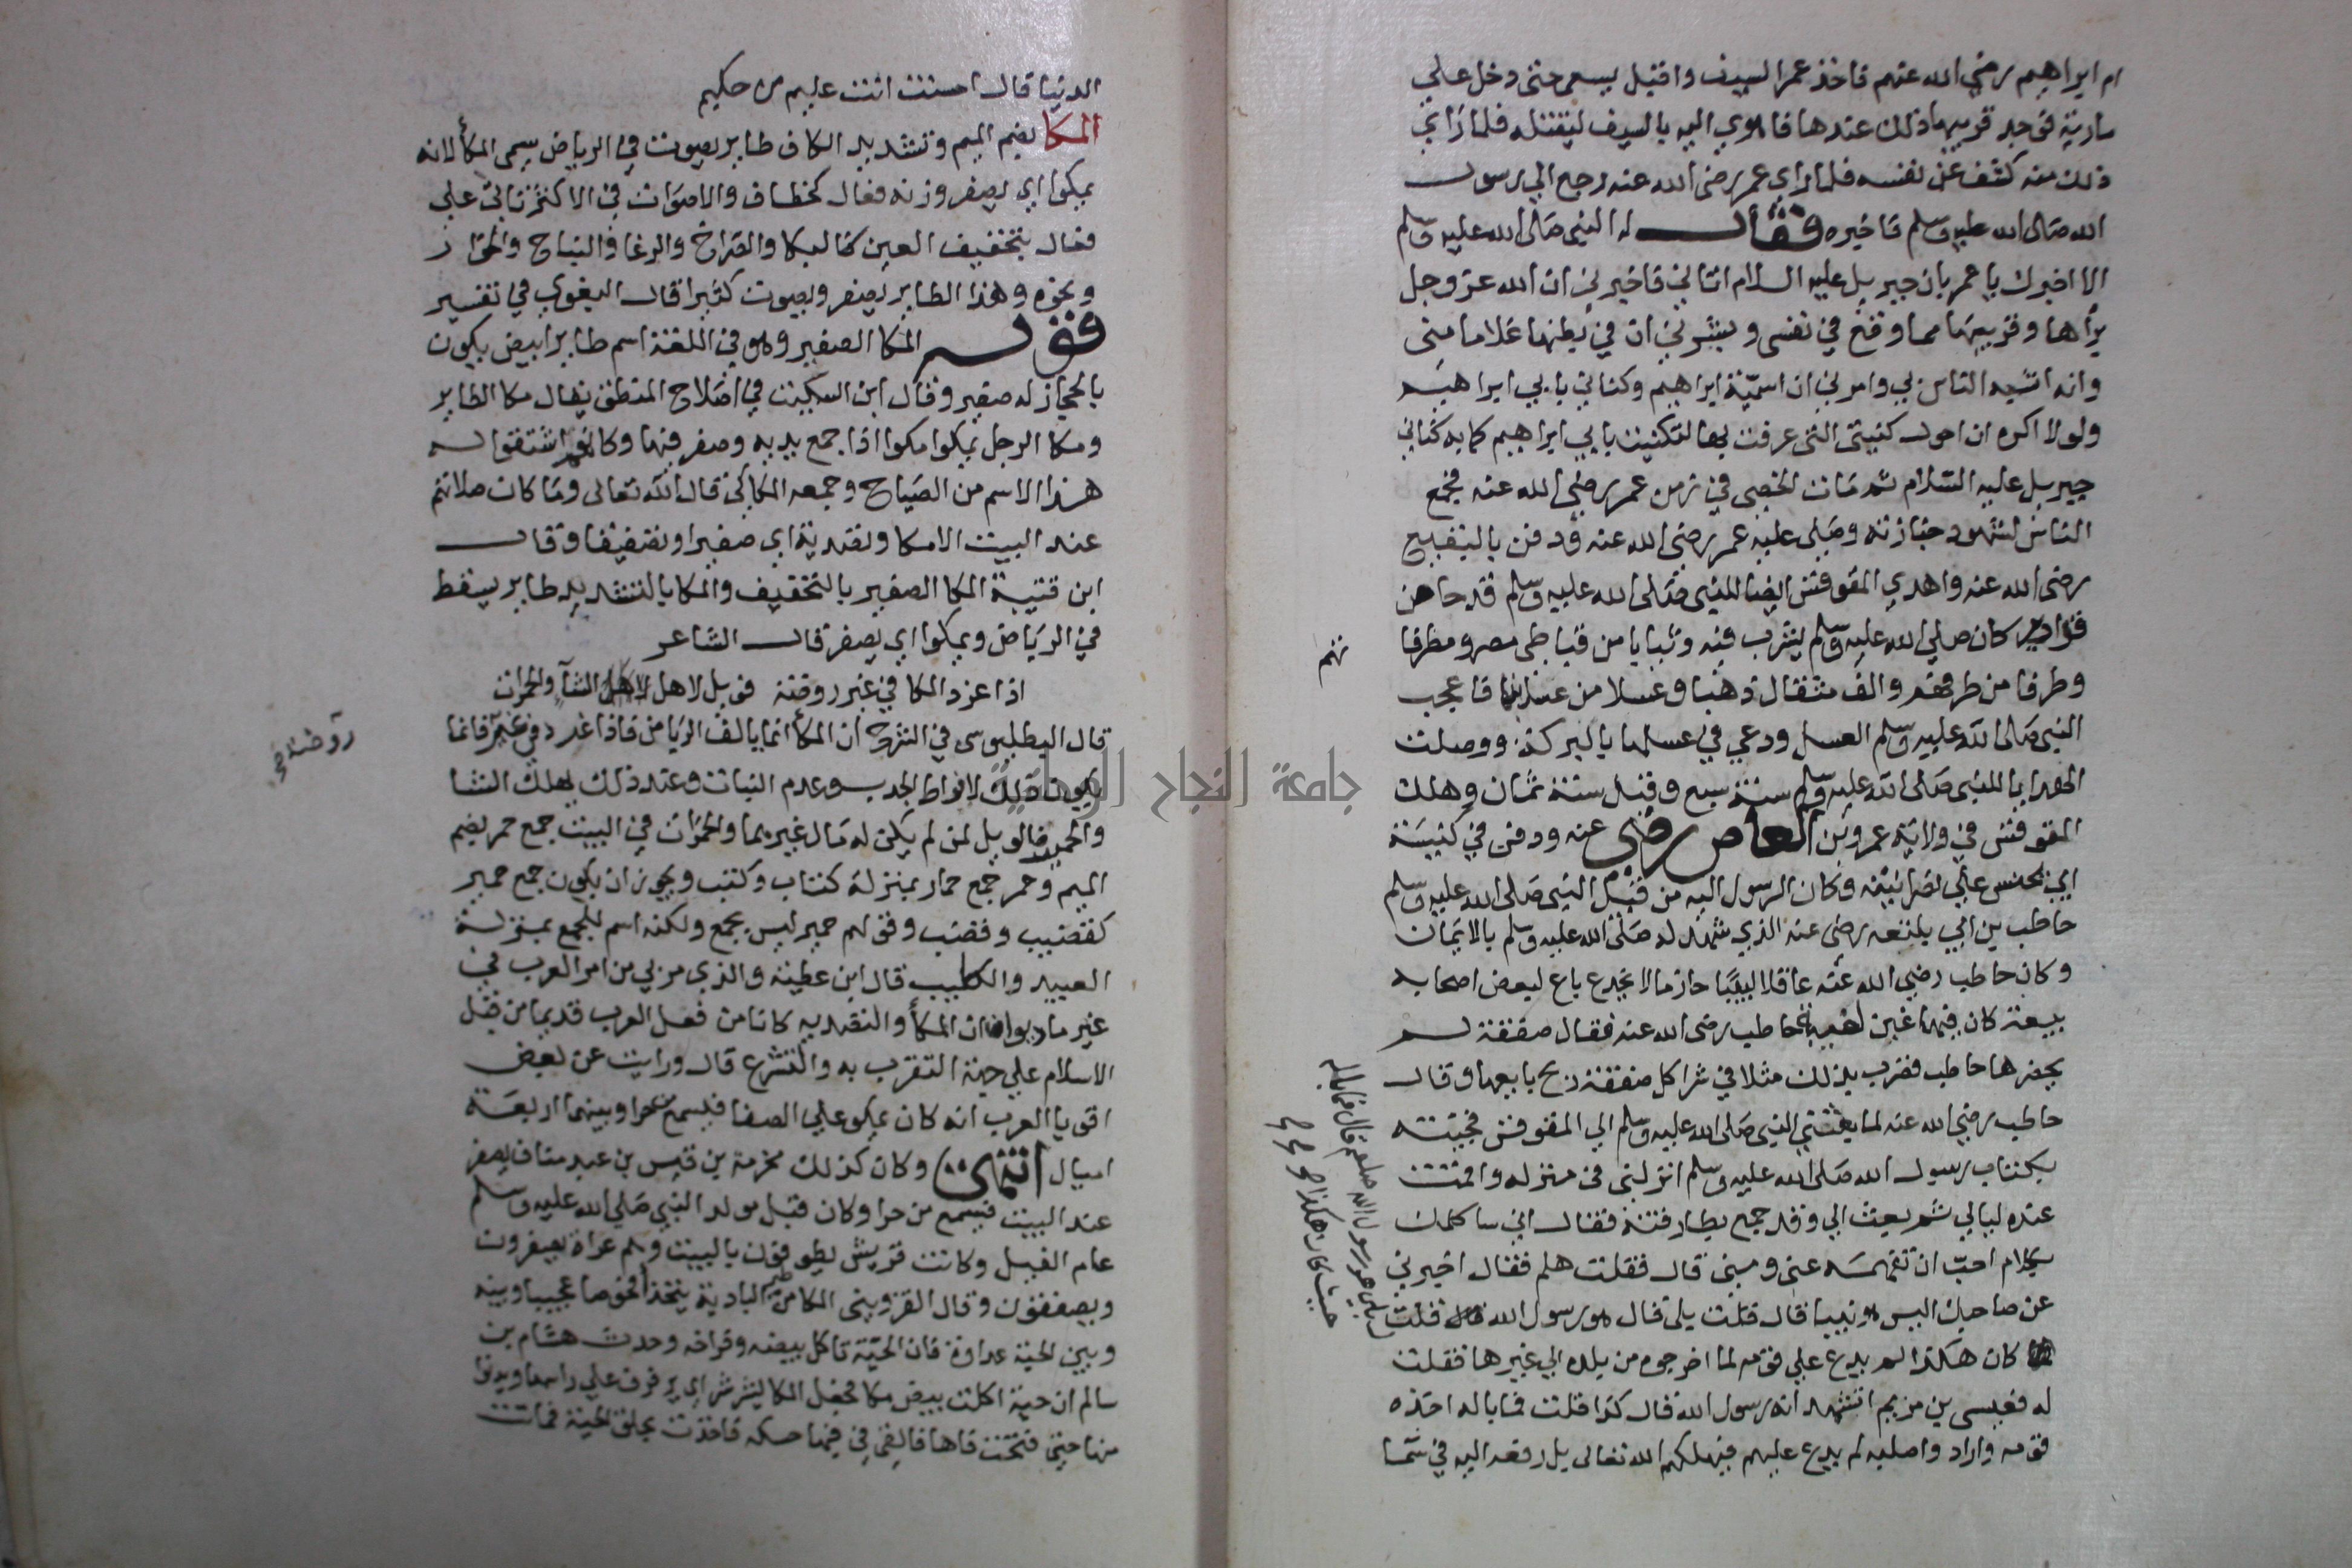 ام ابراهيم رضي الله عنهم فاخذ عمر السيف واقبل يسعى حتى دخل علي
مارية فوجد قريبها ذلك عندها فاهوي اليه بالسيف ليقتله فلما راي
ذلك منه كشف عن نفسه فلما راي عمر رضى الله عنه رجع الي رسول
الله صلى الله عليه وسلم فاخبره فقال له النبي صلى الله عليه وسلم
الا اخبرك يا عمر بان جبريل عليه السلام اتاني فاخبرني ان الله عز وجل
برأها وقريبها مما وقع في نفسى وبشرني ان في بطنها غلاما منى
وانه اشبه الناس بي وامرني ان اسميه ابراهيم وكناني بابي ابراهيم
ولولا اكره ان احول كنيتى التى عرفت بها لتكنيت بابي ابراهيم كما به كناني
جبريل عليه السلام ثم مات الخصى في زمن عمر رضى الله عنه فجمع
الناس لشهود جنازته وصلى عليه عمر رضى الله عنه ودفن بالبقيع
رضى الله عنه واهدي المقوقس ايضا للنبي صلى الله عليه وسلم قدحا من
قوارير كان صلي الله عليه وسلم يشرب فيه وثيابا من قباطى مصر ومطرفا
وطرفا من طرفهم والف مثقال ذهبا وعسلا من عسل بنها فاعجب
النبي صلى الله عليه وسلم العسل ودعي في عسلها بالبركة ووصلت
الهدايا للنبي صلى الله عليه وسلم سنة سبع وقيل سنة ثمان وهلك
المقوقس في ولاية عمرو بن العاص رضى عنه ودفن في كنيسة
ابي يحنس علي نصرانيته وكان الرسول اليه من قبل النبي صلى الله عليه وسلم
حاطب بن ابي بلتعه رضى عنه الذي شهد له صلى الله عليه وسلم بالايمان
وكان حاطب رضي الله عنه عاقلا لبيبا حازما لا يخدع باع لبعض اصحابه
بيعة كان فيها غبن حاطب رضى الله عنه فقال صفقة لم
يحضرها حاطب فضرب بذلك مثلا في شرا كل صفقة ربح بايعها وقال
حاطب رضي الله عنه لما بعثني النبي صلى الله عليه وسلم الي المقوقس فجيته
بكتاب رسول الله صلى الله عليه وسلم انزلنى في منزله واقمت
عنده ليالي ثم بعث الي وقد جمع بطارقته فقال اني ساكلمك
بكلام احب ان تفهمه عني ومني قال فقلت هلم فقال اخبرني
عن صاحبك اليس هو نبيا قال قلت بلى قال هو رسول الله قلت
كان هكذا لم يدع علي قومه لما اخرجوه من بلده الي غيرها فقلت
له فعيسى بن مريم اتشهد انه رسول الله قال كذا قلت فما باله اخذه
قومه واراد واصلبه لم يدع عليهم فيهلكهم الله تعالى بل رفعه اليه في سما
بلي هو رسول الله صلعم قال فما باله
حيث كان هكذا
الدنيا قال احسنت انت عليم من حكيم
المكا بضم الميم وتشديد الكاف طاير يصوت في الرياض يسمى المكا لانه
يمكوا اي يصفر وزنه فعال كخطاف والاصوات في الاكثر تاتي على
فعال بتخفيف العين كالبكا والصراخ والرغا والنباح والخوار
ونحوه وهذا الطاير يصفر ويصوت كثيرا قال البغوي في تفسير
قوله المكا الصفير وهو في اللغة اسم طاير ابيض يكون
بالحجاز له صفير وقال ابن السكيت في اصلاح المنطق يقال مكا الطاير
ومكا الرجل يمكوا مكوا اذا جمع يديه وصفر فيها وكانهم اشتقوا له
هذا الاسم من الصياح وجمعه المكاكي قال الله تعالى وما كان صلاتهم
عند البيت الا مكا وتصدية اي صفيرا وتصفيقا وقال
ابن قتيبة المكا الصفير بالتخفيف والمكا بالتشديد طاير يسقط
في الرياض ويمكوا اي يصفر قال الشاعر
اذا غرد المكا في غير روضة فويل لاهل الشآ والحمرات
قال البطلبوسى في الشرح ان المكا انما يالف الرياض فاذا غرد في غير فانما
يكون ذلك لافراط الجدب وعدم النبات وعند ذلك يهلك الشا
والحمير فالويل لمن لم يكن له مال غيرهما والحمرات في البيت جمع حمر بضم
الميم وحمر جمع حمار بمنزلة كتاب وكتب ويجوز ان يكون جمع حمير
كقضيب وقضب وقولهم حمير ليس بجمع ولكنه اسم للجمع بمنزلة
العبيد والكليب قال ابن عطية والذي مر بي من امر العرب في
غير ما ديوان ان المكا والتصديه كانا من فعل العرب قديما من قبل
الاسلام علي جهة التقرب به والتشرع قال ورايت عن بعض
اقويا العرب انه كان يمكو علي الصفا فيسمع من حرا وبينهما اربعة
اميال انتهى وكان كذلك مخرمة بن قيس بن عبد مناف يصفر
عند البيت فيسمع من حرا وكان قبل مولد النبي صلي الله عليه وسلم
عام الفيل وكانت قريش يطوفون بالبيت وهم عراة يصفرون
ويصفقون وقال القزوينى المكا من طير البادية يتخذ افحوصا عجيبا وبينه
وبين الحية عداوة فان الحية تاكل بيضه وفراخه وحدث هشام بن
سالم ان حية اكلت بيض مكا فجعل المكا يشرشر اي يرفرف علي راسها ويدنوا
منها حتى فتحت فاها فالقى في فيها حسكه فاخذت بحلق الحية فماتت
روضته